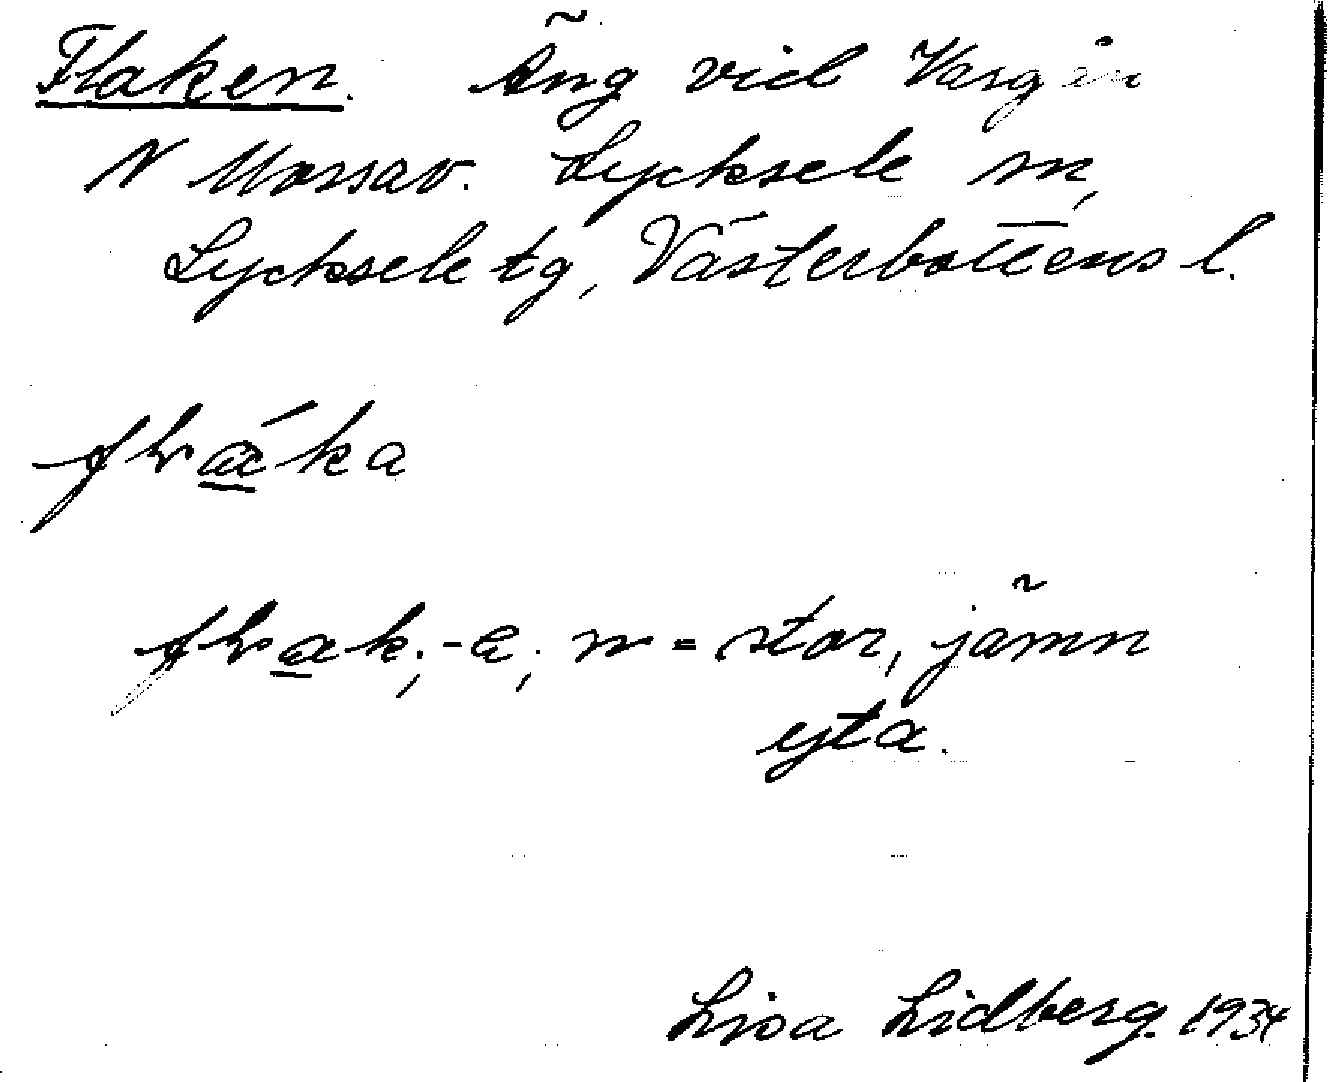 Flaken. Äng vid Vargån
N Norrsav. Lycksele sn,
Lycksele tg, Västerbottens l.
flǽka
flak, -a, n = stor, jämn
yta.
Lisa Lidberg. 1934